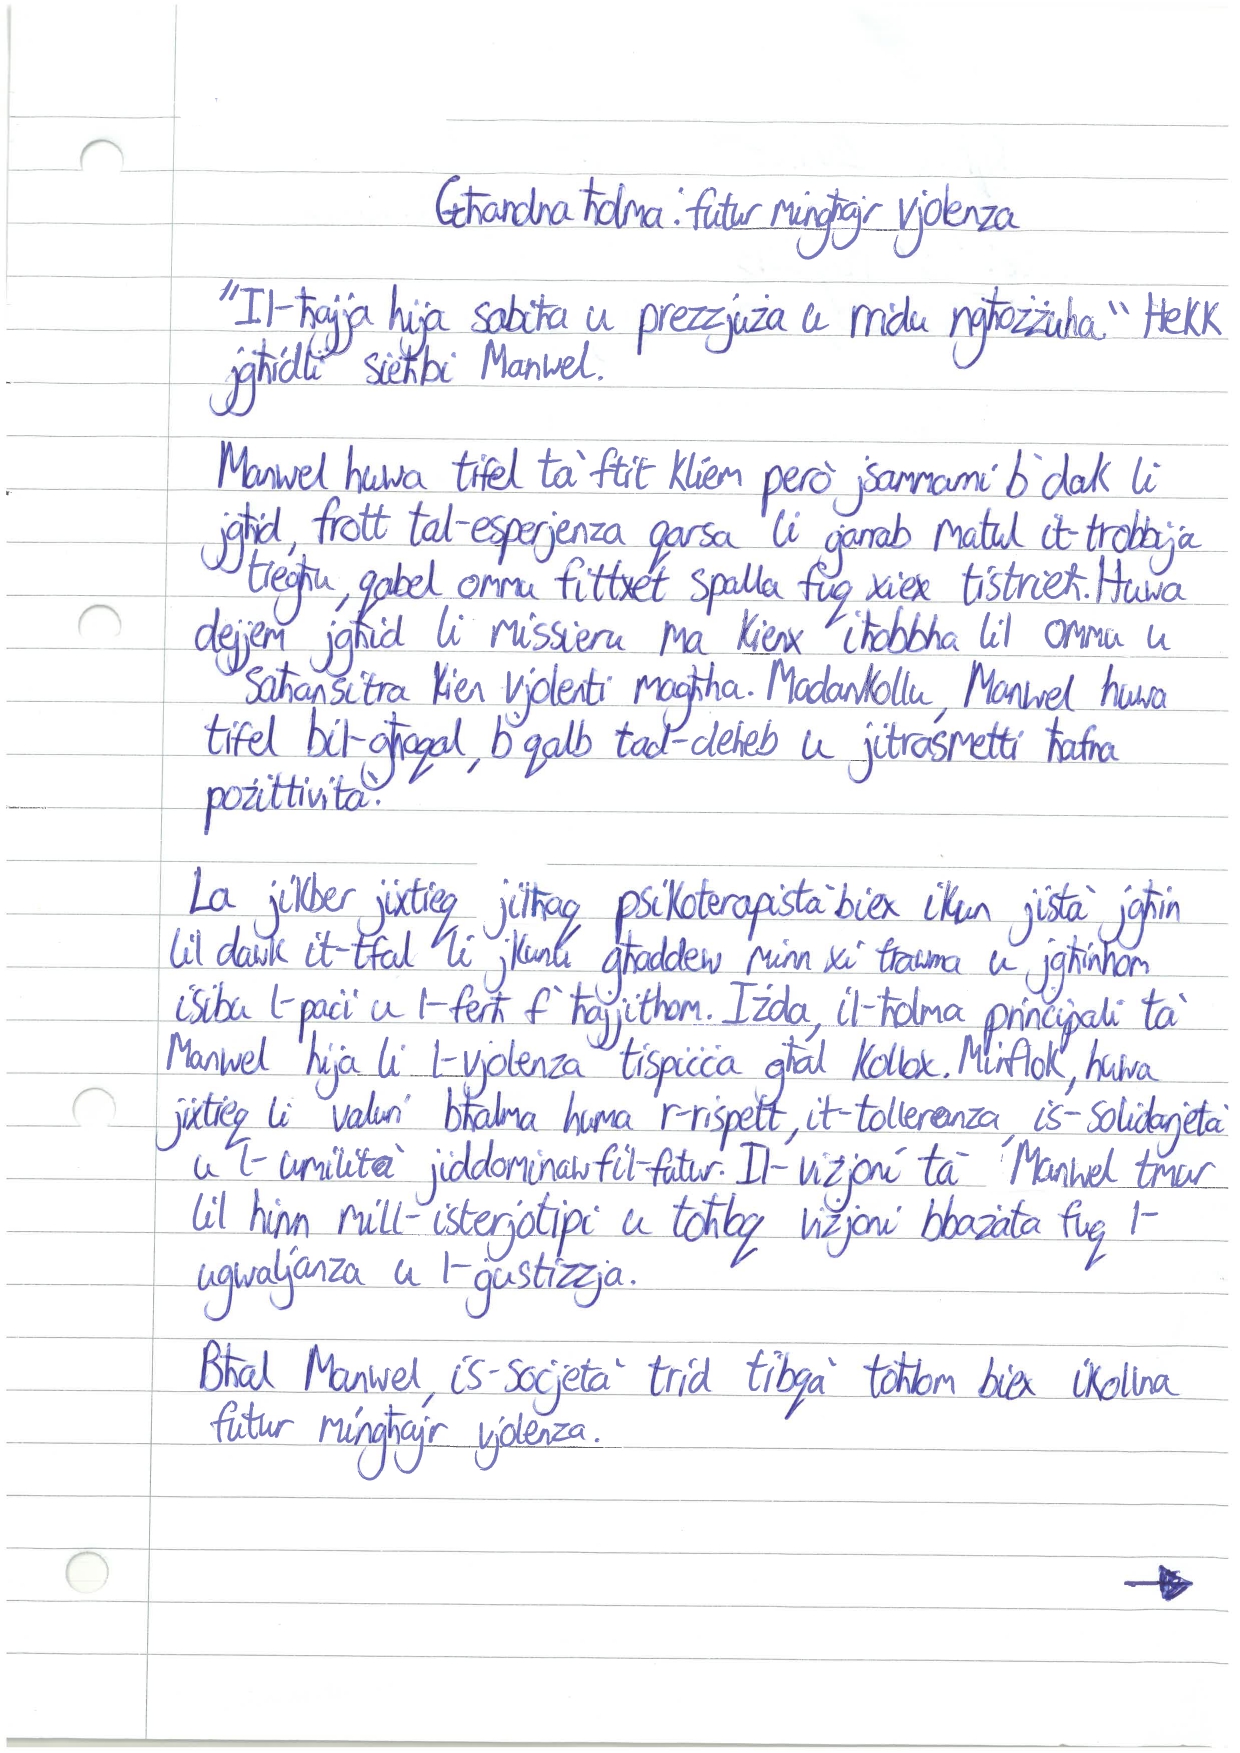 Għandna ħolma: futur mingħajr vjolenza
"Il-ħajja hija sabiħa u prezzjuża u rridu ngħożżuha." Hekk
jgħidli sieħbi Manwel.
Manwel huwa tifel ta' ftit kliem però jsammarni b'dak li
jgħid, frott tal-esperjenza qarsa li ġarrab matul it-trobbija
tiegħu, qabel ommu fittxet spalla fuq xiex tistrieħ. Huwa
dejjem jgħid li missieru ma kienx iħobbha lil ommu u
saħansitra kien vjolenti magħha. Madankollu, Manwel huwa
tifel bil-għaqal, b'qalb tad-deheb u jitrasmetti ħafna
pożittività.
La jikber jixtieq jilħaq psikoterapista biex ikun jista' jgħin
lil dawk it-tfal li jkunu għaddew minn xi trawma u jgħinhom
isibu l-paċi u l-ferħ f'ħajjithom. Iżda, il-ħolma prinċipali ta'
Manwel hija li l-vjolenza tispiċċa għal kollox. Minflok, huwa
jixtieq li valuri bħalma huma r-rispett, it-tolleranza, is-solidarjetà
u l-umiltà jiddominaw fil-futur. Il-viżjoni ta' Manwel tmur
lil hinn mill-isterjotipi u toħloq viżjoni bbażata fuq l-
ugwaljanza u l-ġustizzja.
Bħal Manwel, is-soċjetà trid tibqa' toħlom biex ikollna
futur mingħajr vjolenza.